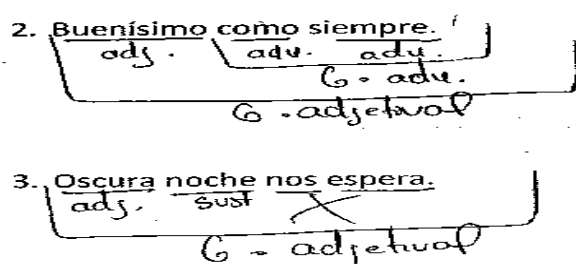 2. Buenísimo como siempre.
adj. adv. adv.
G. adv.
G. adjetival
3. Oscura noche nos espera.
adj. sust
G. adjetival